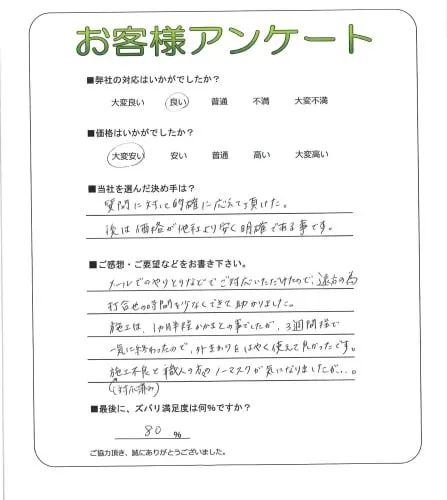 お客様アンケート
■弊社の対応はいかがでしたか？
大変良い 良い 普通 不満 大変不満
■価格はいかがでしたか？
大変安い 安い 普通 高い 大変高い
■当社を選んだ決め手は？
質問に対して的確に応えて頂けた。
後は価格が他社より安く明確である事です。
■ご感想・ご要望などをお書き下さい。
メールでのやりとりなどでご対応いただけたので、遠方の為
打合せの時間を少なくできて助かりました。
施工は、1か月半程かかるとの事でしたが、3週間程で
一気に終わったので、外まわりをはやく使えて良かったです。
施工不良と職人の方のノーマスクが気になりましたが...。
(対応済み)
■最後に、ズバリ満足度は何％ですか？
80 ％
ご協力頂き、誠にありがとうございました。